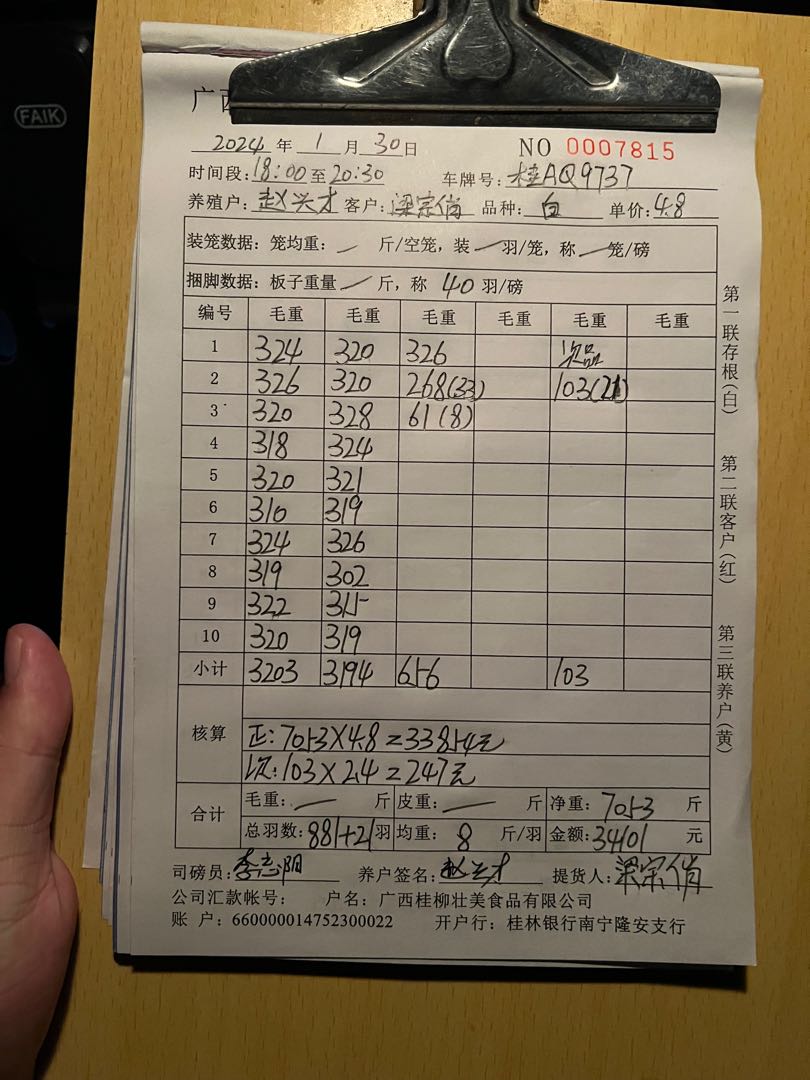 FAIK
广西
2024 年 1 月 30 日 NO 0007815
时间段:18:00 至 20:30 车牌号:桂AQ9737
养殖户:赵兴才 客户:梁宗俏 品种:白 单价:4.8
装笼数据:笼均重:/ 斤/空笼,装 / 羽/笼,称 / 笼/磅
捆脚数据:板子重量 / 斤,称 40 羽/磅
编号 毛重 毛重 毛重 毛重 毛重 毛重
1 324 320 326 次品
2 326 320 268(33) 103(21)
3 320 328 61(8)
4 318 324
5 320 321
6 310 319
7 324 326
8 319 302
9 322 315
10 320 319
小计 3203 3194 656 103
核算
正:7053×4.8=33854元
次:103×2.4=247元
合计 毛重:— 斤 皮重:— 斤 净重:7053 斤
总羽数:881+21羽 均重:8 斤/羽 金额:34101 元
司磅员:李志阳 养户签名:赵兴才 提货人:梁宗俏
公司汇款帐号: 户名:广西桂柳壮美食品有限公司
账 户:660000014752300022 开户行:桂林银行南宁隆安支行
第一联存根(白)
第二联客户(红)
第三联养户(黄)